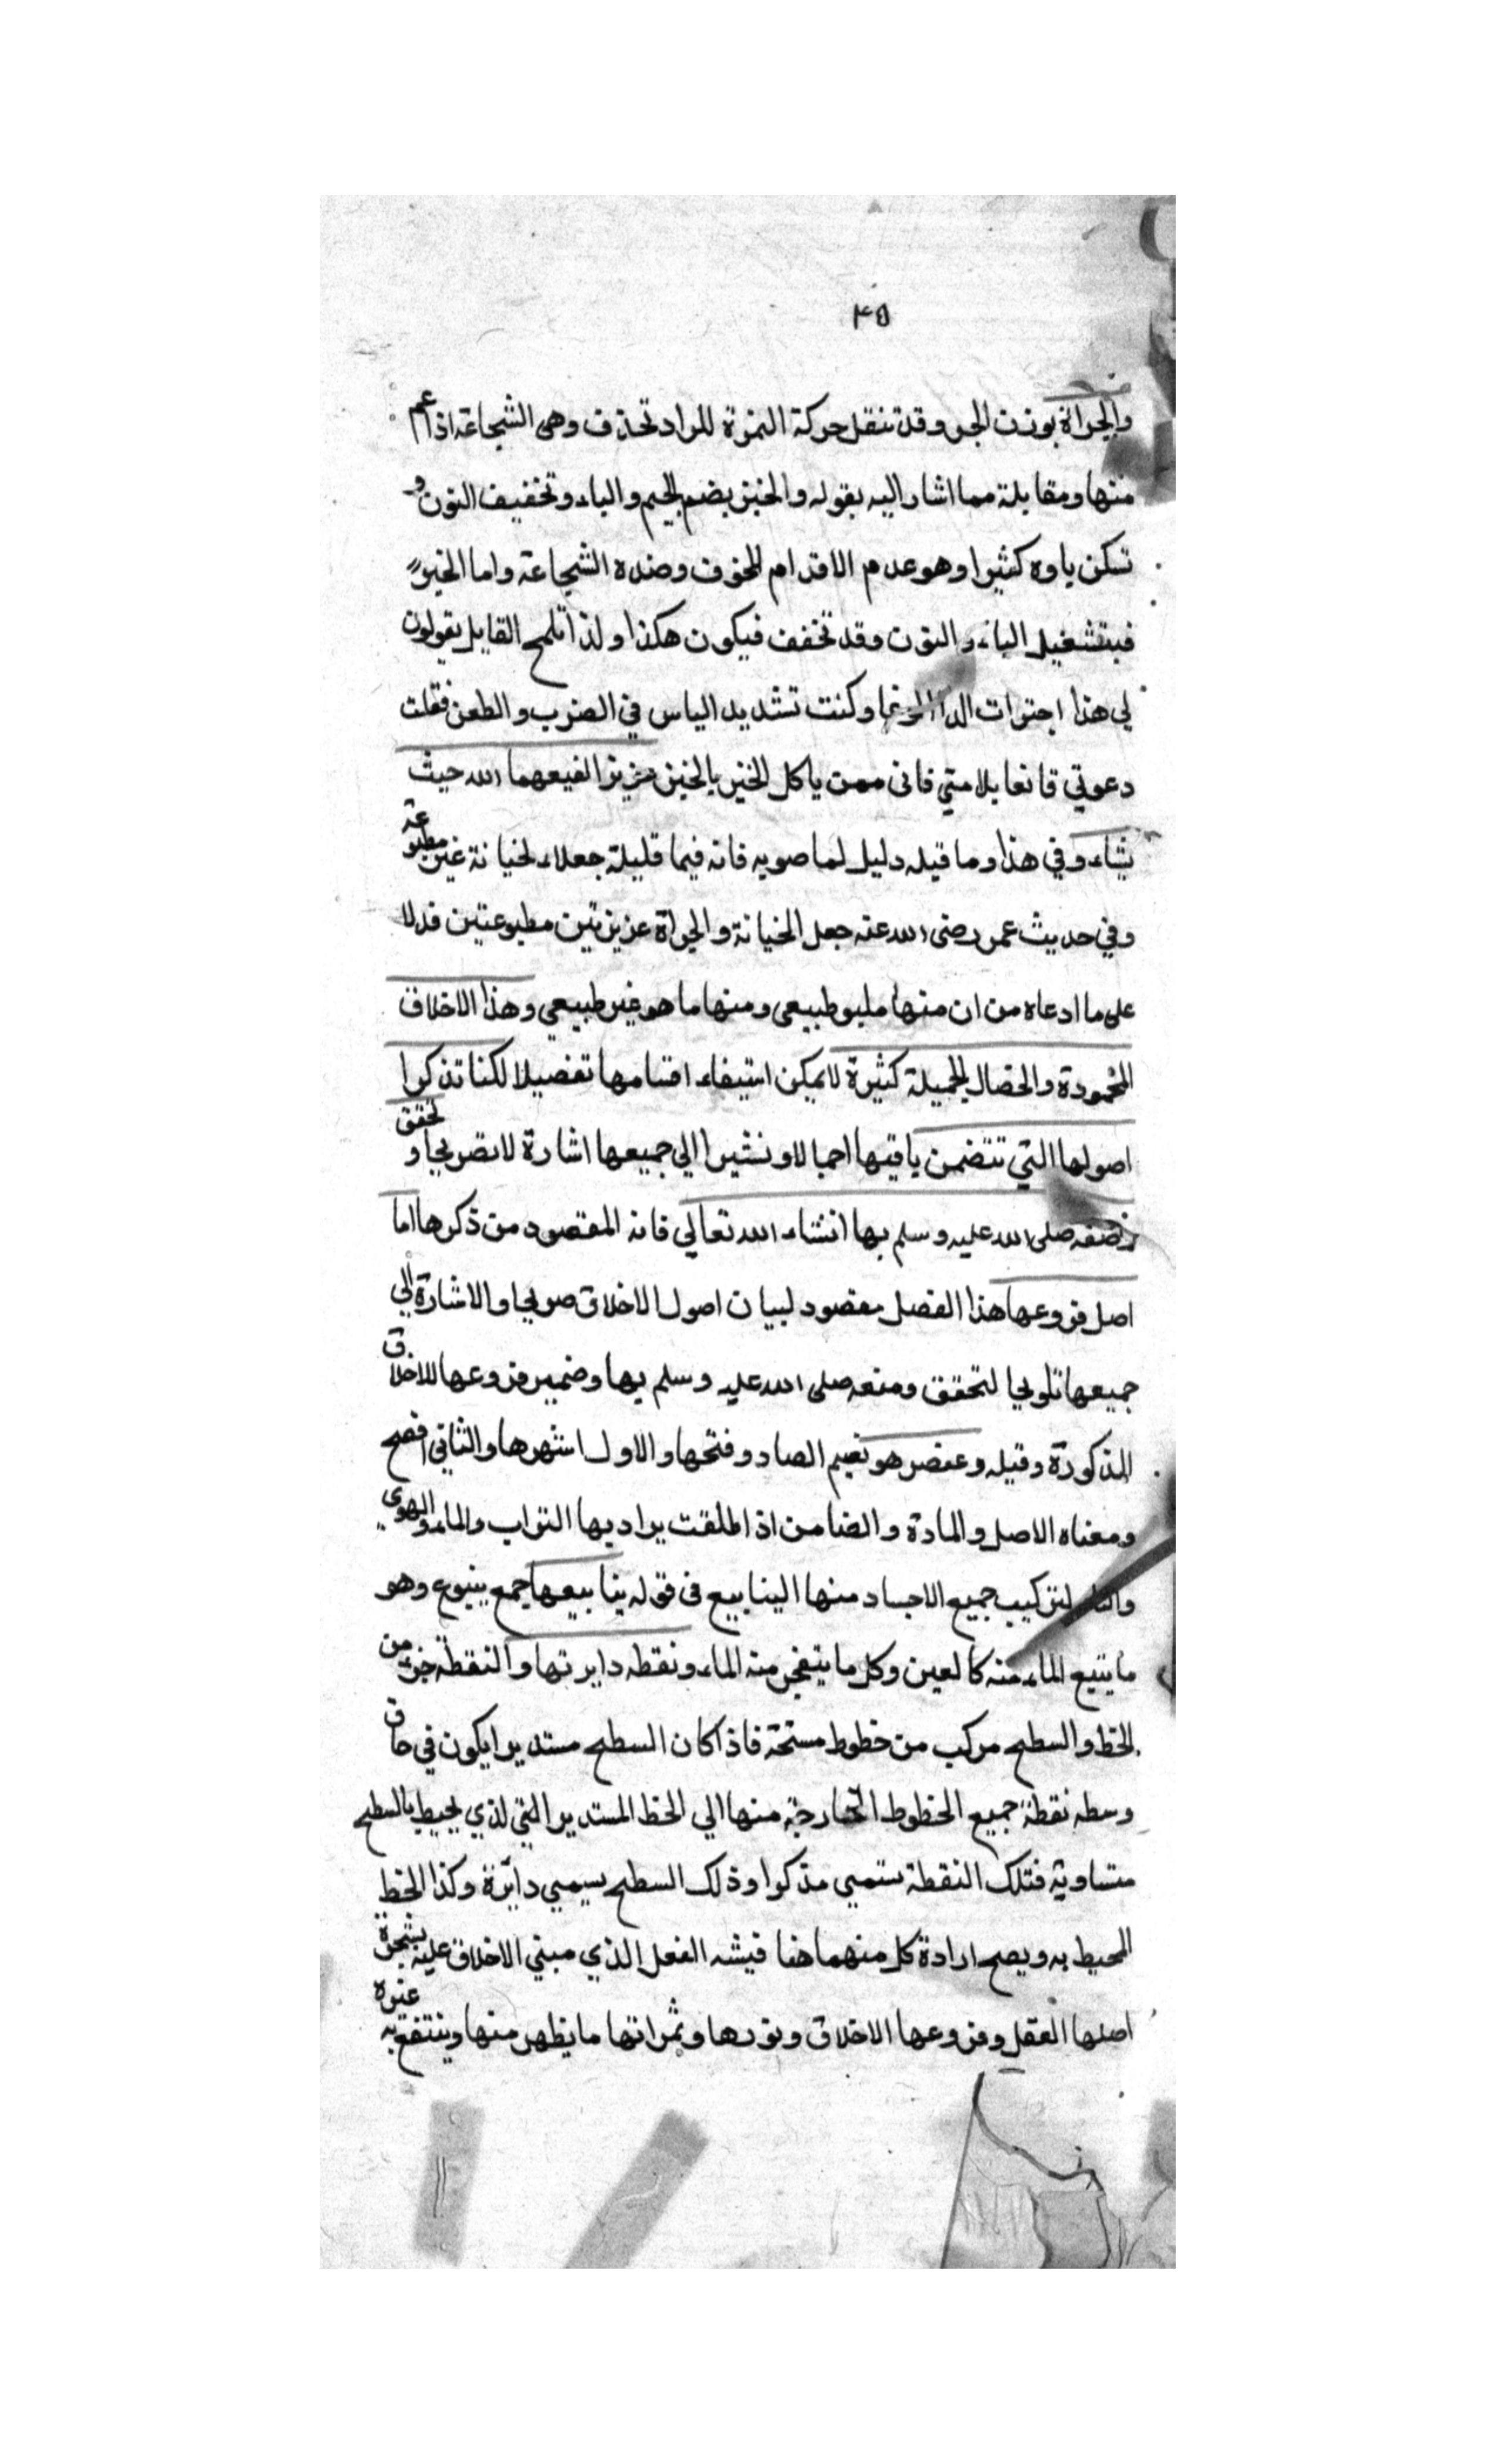 ٣٥
والجراة بوزن الجر وقد تنقل حركة الهمزة للراد تحذف وهى الشجاعة اذ اعم
منها ومقابلة مما اشار اليه بقوله والجبن بضم الجيم والباء وتخفيف النون و
تسكن ياوه كثيرا وهو عدم الاقدام للخوف وضده الشجاعة واما الجبن
فبتشغيل الباء و النون وقد تخفف فيكون هكذا ولذا تلمح القايل يقولون
لي هذا اجترات وكنت تشديد الباس في الضرب والطعن فقلت
دعوتي قانعا بلامتي فانى ممن ياكل الخبز بالجبن عزيزا الفيعهما الله حيث
يشاء وفي هذا وما قيله دليل لما صوبه فانه فيما قليلة جعلاء لخيانة غير مطبوعة
وفي حديث عمر رضى الله عنه جعل الخيانة والجراة عزيزتين مطبوعتين فدلا
على ما ادعاه من ان منها مليو طبيعى ومنها ما هو غير طبيعي وهذا الاخلاق
المحمودة والخصال الجميلة كثيرة لا يمكن استيفاء اقسامها تفصيلا لكنا تذكرا
اصولها التي تتضمن باقيها اجمالا ونشيرا الي جميعها اشارة لا تصريحا و لحقق
وصفه صلى الله عليه وسلم بها انشاء الله تعالي فانه المقصود من ذكرها اما
اصل فروعها هذا الفصل مقصود لبيان اصول الاخلاق صريحا والاشارة الي
جميعها تلويحا لتحقق ومنعه صلى الله عليه وسلم بها وضمير فروعها للاخلاق
المذكورة وقيله وعنصر هو نضم الصاد وفتحها والاول اشهرها والثاني افصح
ومعناه الاصل والمادة والضامن اذا طلقت يراد بها التراب والماء والهوي
والنار لتركيب جميع الاجساد منها الينابيع فى قوله ينابيعها جمع ينبوع وهو
ما يتبع الماء منه كالعين وكل ما يتفجر منه الماء ونقطه دايرتها والنقطة جزء من
الخط والسطح مركب من خطوط مستحة فاذا كان السطح مستديرا يكون في حاق
وسطه نقطة جميع الخطوط الخارجة منها الي الخط المستدير التي لذي يحيط بالسطح
متساوية فتلك النقطة تسمي مذكرا وذلك السطح يسمي دايرة وكذا الخط
المحيط به ويصح ارادة كل منهما هنا فيشه الفعل الذي مبني الاخلاق عليه بشجرة
اصلها العقل وفروعها الاخلاق ونورها وثمراتها ما يظهر منها وينتفع به غيره